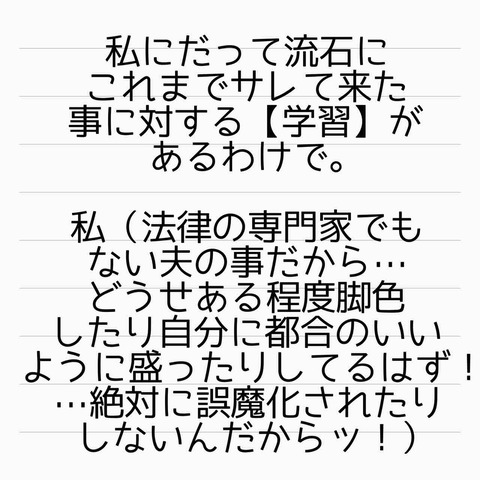 私にだって流石に
これまでサレて来た
事に対する【学習】が
あるわけで。
私（法律の専門家でも
ない夫の事だから…
どうせある程度脚色
したり自分に都合のいい
ように盛ったりしてるはず！
…絶対に誤魔化されたり
しないんだからッ！）